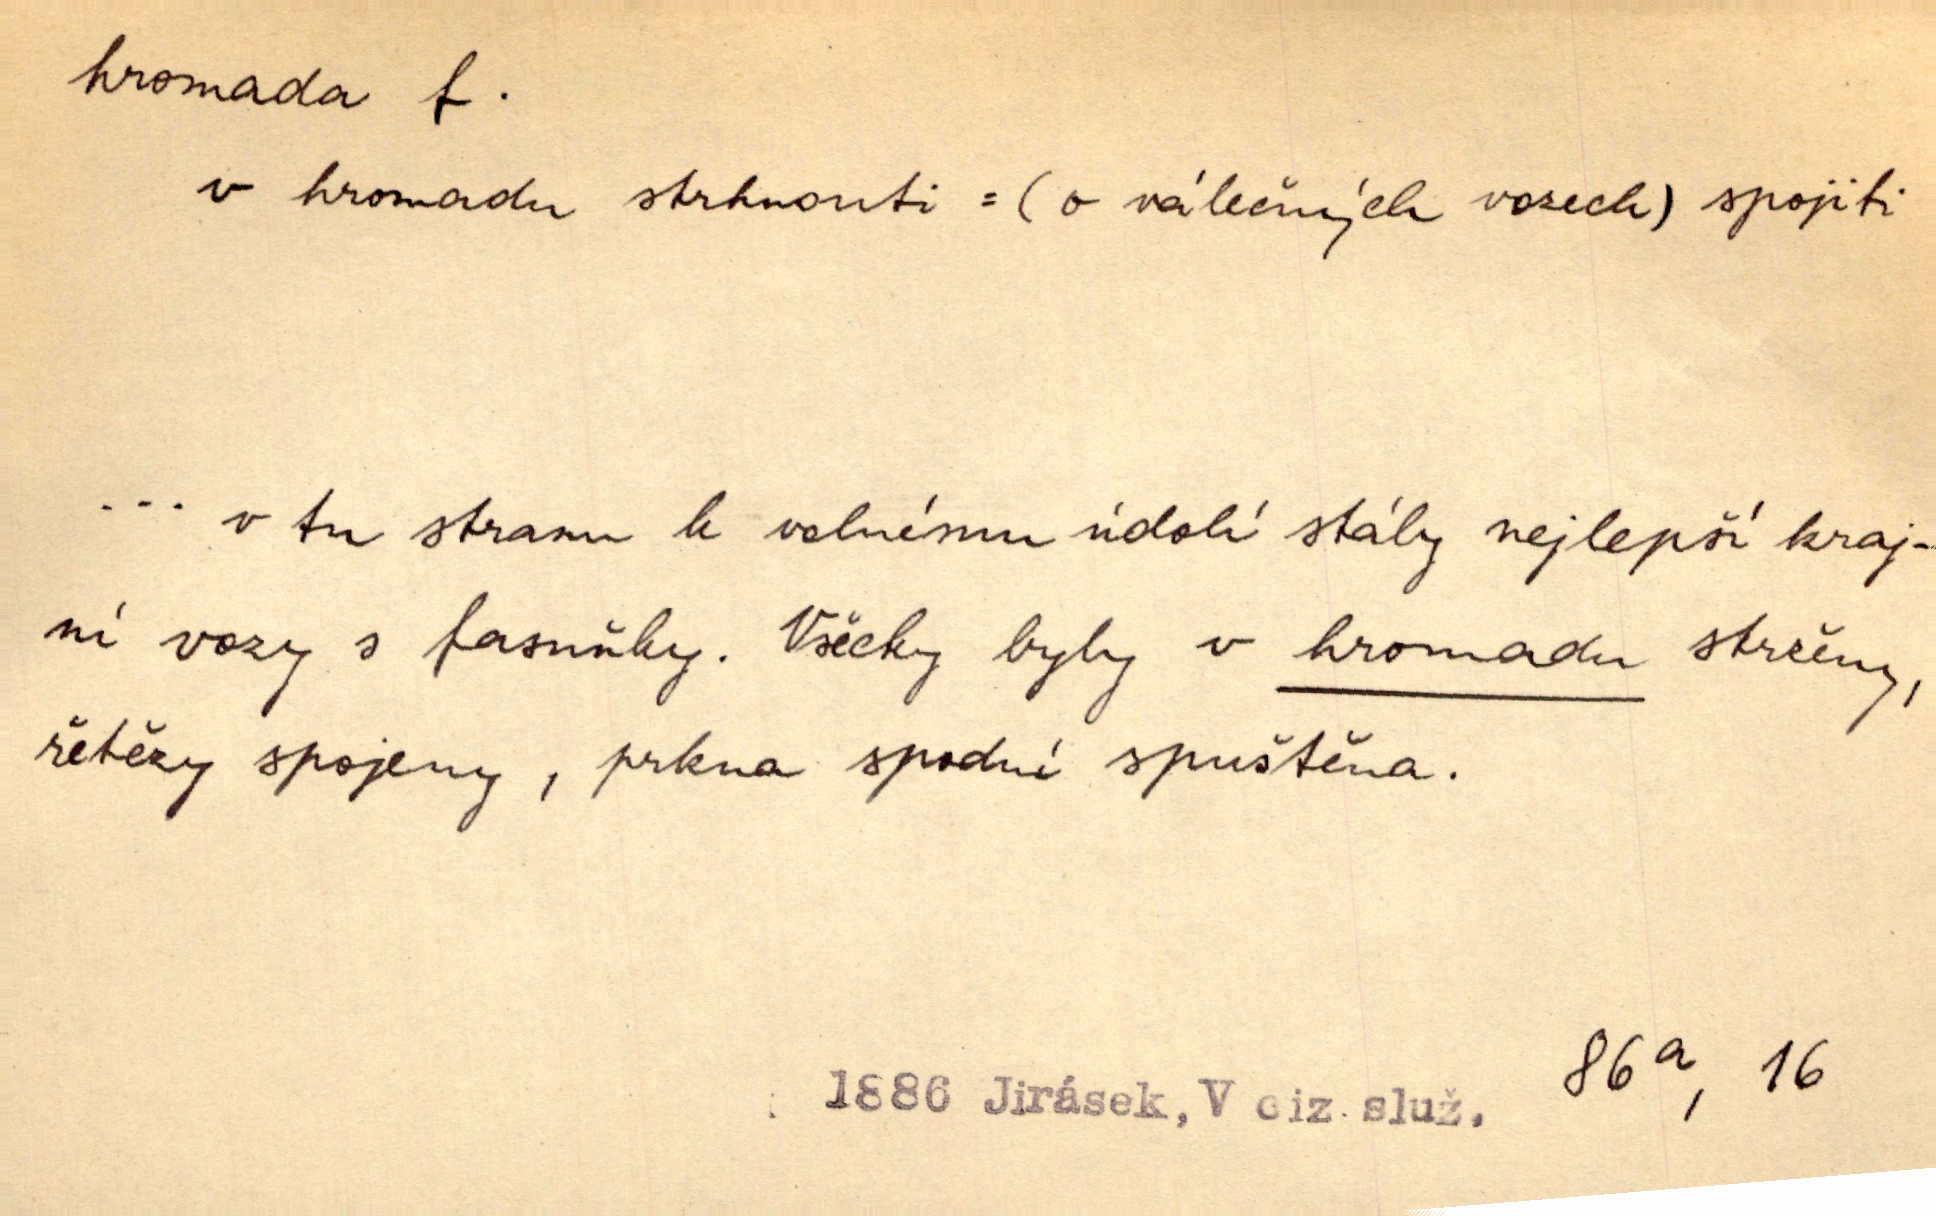 hromada f.
v hromadu strhnouti = (o válečných vozech) spojiti
--- v tu stranu k volnému údolí stály nejlepší kraj-
ní vozy s fasuňky. Všecky byly v hromadu strženy,
řetězy spojeny, prkna spodní spuštěna.
86a, 16
1886 Jirásek, V ciz. služ.